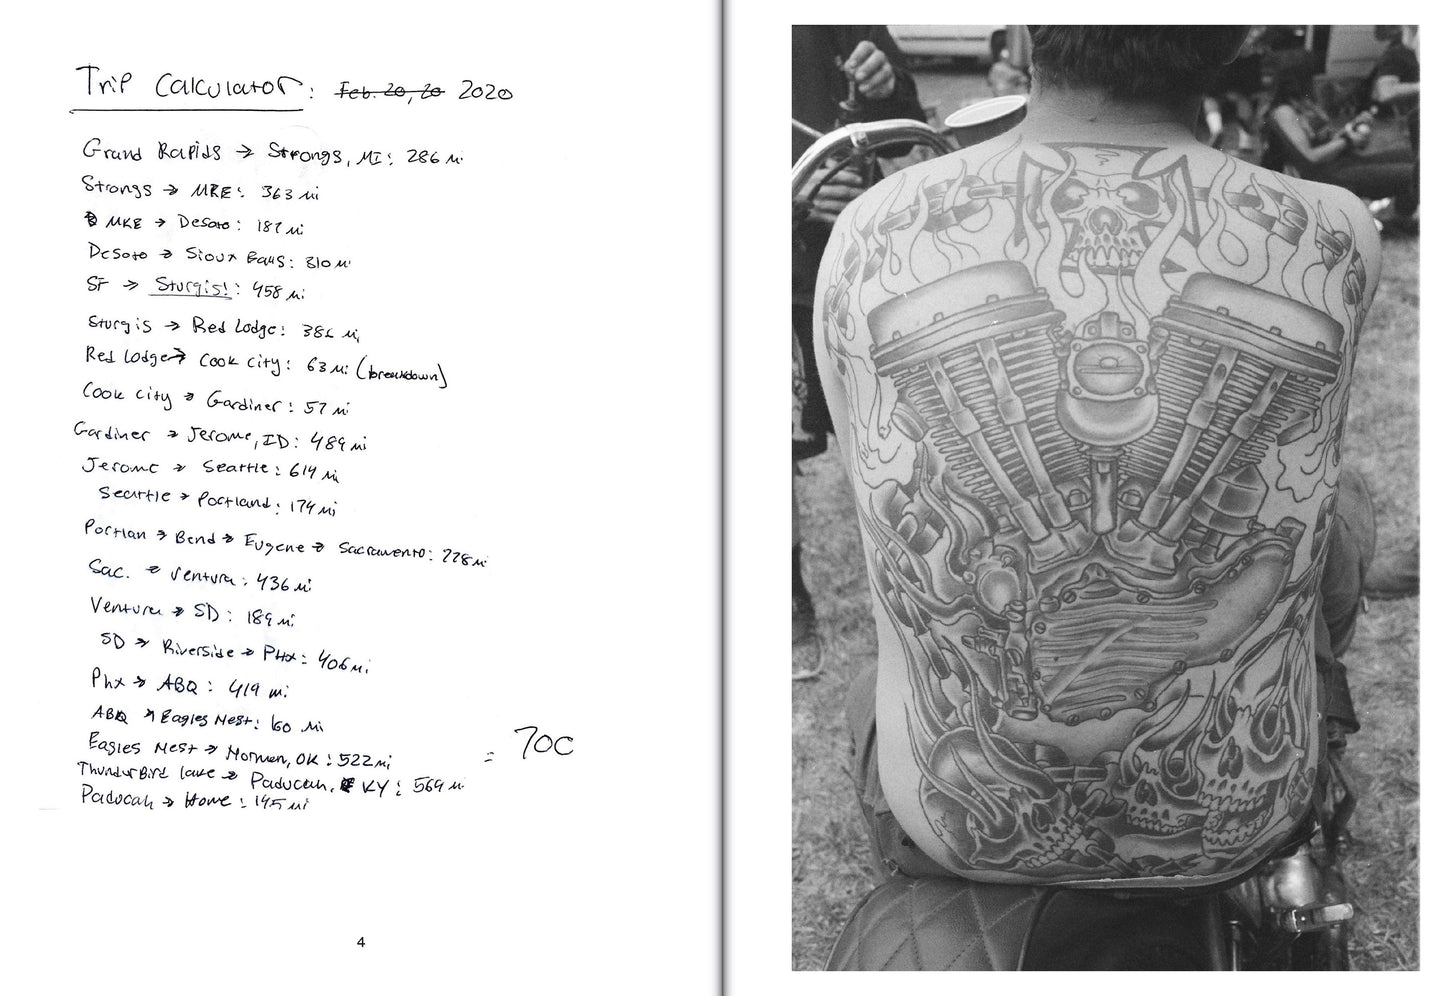 Trip Calculator: Feb. 20, 20 2020
Grand Rapids → Strongs, MI: 286 mi
Strongs → MKE: 363 mi
MKE → Desoto: 187 mi
Desoto → Sioux Falls: 310 mi
SF → Sturgis!: 458 mi
Sturgis → Red Lodge: 381 mi
Red Lodge → Cook City: 63 mi (breakdown)
Cook City → Gardiner: 57 mi
Gardiner → Jerome, ID: 489 mi
Jerome → Seattle: 614 mi
Seattle → Portland: 174 mi
Portlan → Bend → Eugene → Sacramento: 728 mi
Sac. → Ventura: 436 mi
Ventura → SD: 189 mi
SD → Riverside → PHX: 406 mi
Phx → ABQ: 419 mi
ABQ → Eagles Nest: 160 mi
Eagles Nest → Norman, OK: 522 mi
= 700
ThunderBird lake → Paducah, KY: 569 mi
Paducah → Home: 145 mi
4